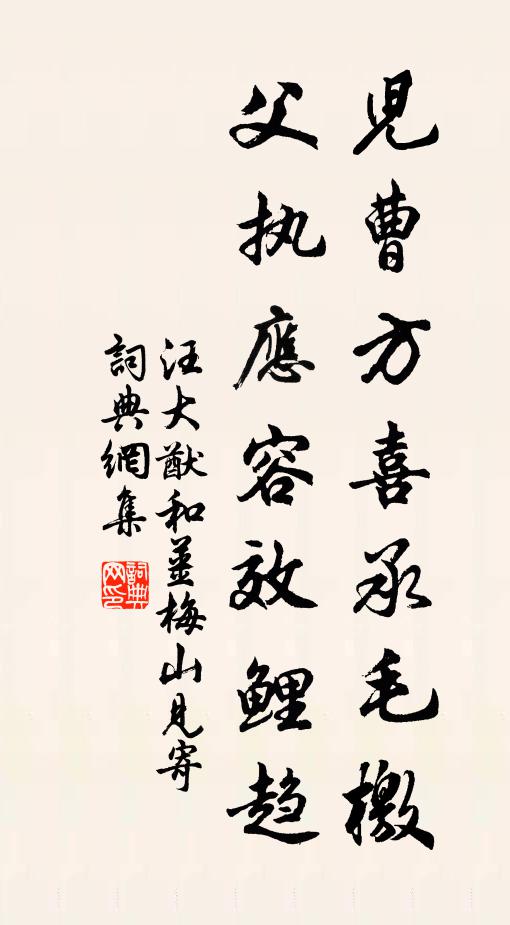 兒曹方喜承毛檄
父执應容效鯉趋
汪大猷和姜梅山見寄
詞典網集
詞典网印